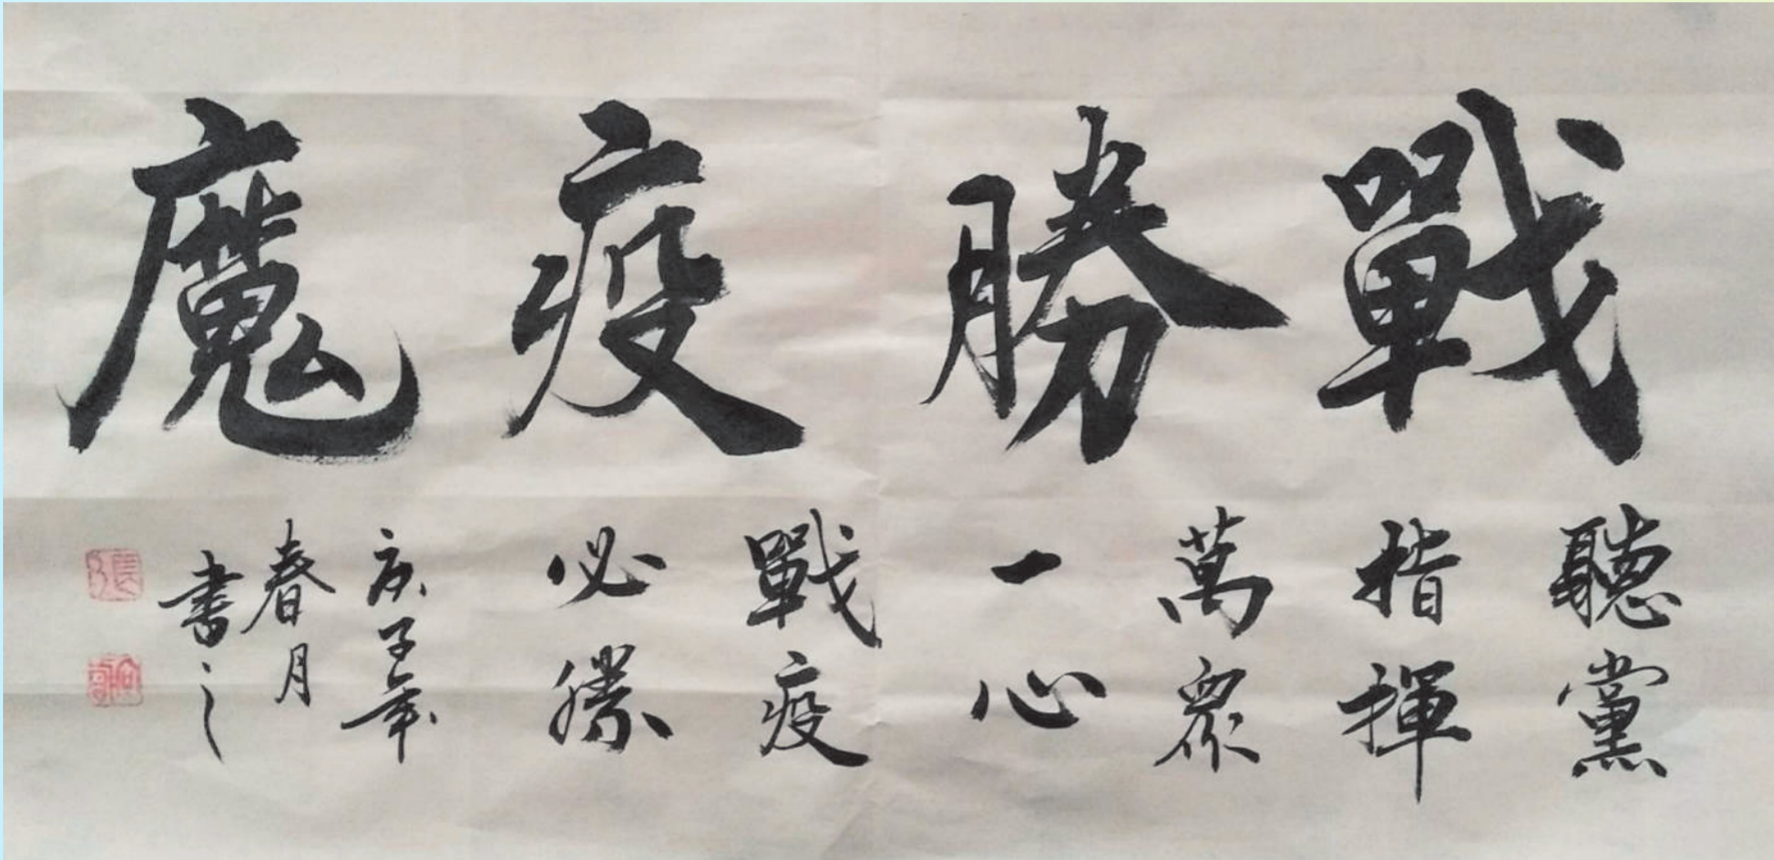 戰勝疫魔
聽黨
指揮
萬眾
一心
戰疫
必勝
庚子年
春月
書之